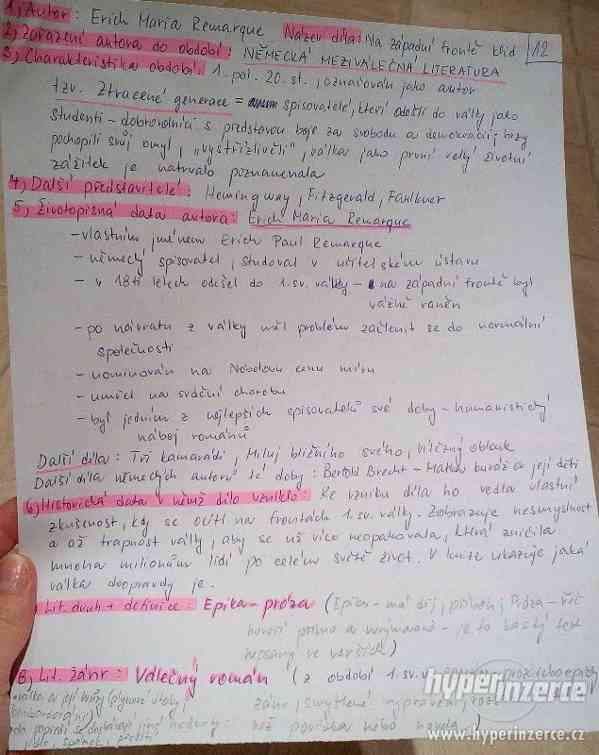 1) Autor: Erich Maria Remarque Název díla: Na západní frontě klid 12
2) zařazení autora do období: NĚMECKÁ MEZIVÁLEČNÁ LITERATURA
3) Charakteristika období: 1. pol. 20. st., označován jako autor
tzv. Ztracené generace = spisovatelé, kteří odešli do války jako
studenti - dobrovolníci s představou boje za svobodu a demokracii, brzy
pochopili svůj omyl, "vystřízlivěli", válka jako první velký životní
zážitek je natrvalo poznamenala
4) Další představitelé: Hemingway, Fitzgerald, Faulkner
5) Životopisná data autora: Erich Maria Remarque
- vlastním jménem Erich Paul Remarque
- německý spisovatel, studoval v učitelském ústavu
- v 18ti letech odešel do 1. sv. války - na západní frontě byl
vážně raněn
- po návratu z války měl problém začlenit se do normální
společnosti
- nominován na Nobelovu cenu míru
- umřel na srdeční chorobu
- byl jedním z nejlepších spisovatelů své doby - humanistický
náboj románů
Další díla: Tři kamarádi, Miluj bližního svého, Vítězný oblouk
Další díla německých autorů té doby: Bertold Brecht - Matka kuráž a její děti
6) Historická data v němž dílo vzniklo: Ke vzniku díla ho vedla vlastní
zkušenost, kdy se ocitl na frontách 1. sv. války. Zobrazuje nesmyslnost
a až trapnost války, aby se už více neopakovala, která zničila
mnoha milionům lidí po celém světě život. V knize ukazuje jaká
válka doopravdy je.
Lit. druh + definice: Epika - próza (Epika - má děj, příběh; Próza - řeč
hovoří přímo a - je to každý text
nepsaný ve verších)
8) Lit. žánr: Válečný román (z období 1. sv. v
válka a její
vyprávění
než povídka nebo novela)
hyperinzerce
www.hyperinzerce.cz